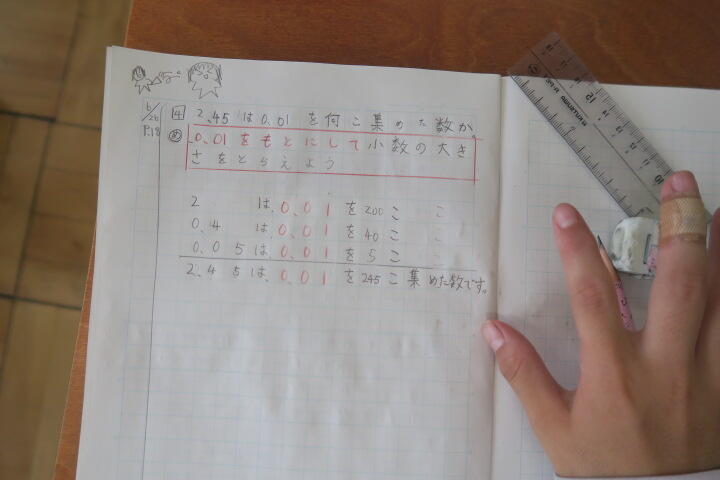 6/26
P.18
4 2.45は0.01を何こ集めた数か。
め 0.01をもとにして小数の大き
さをとらえよう
2は、0.01を200こ
0.4は、0.01を40こ
0.05は、0.01を5こ
2.45は、0.01を245こ集めた数です。
15